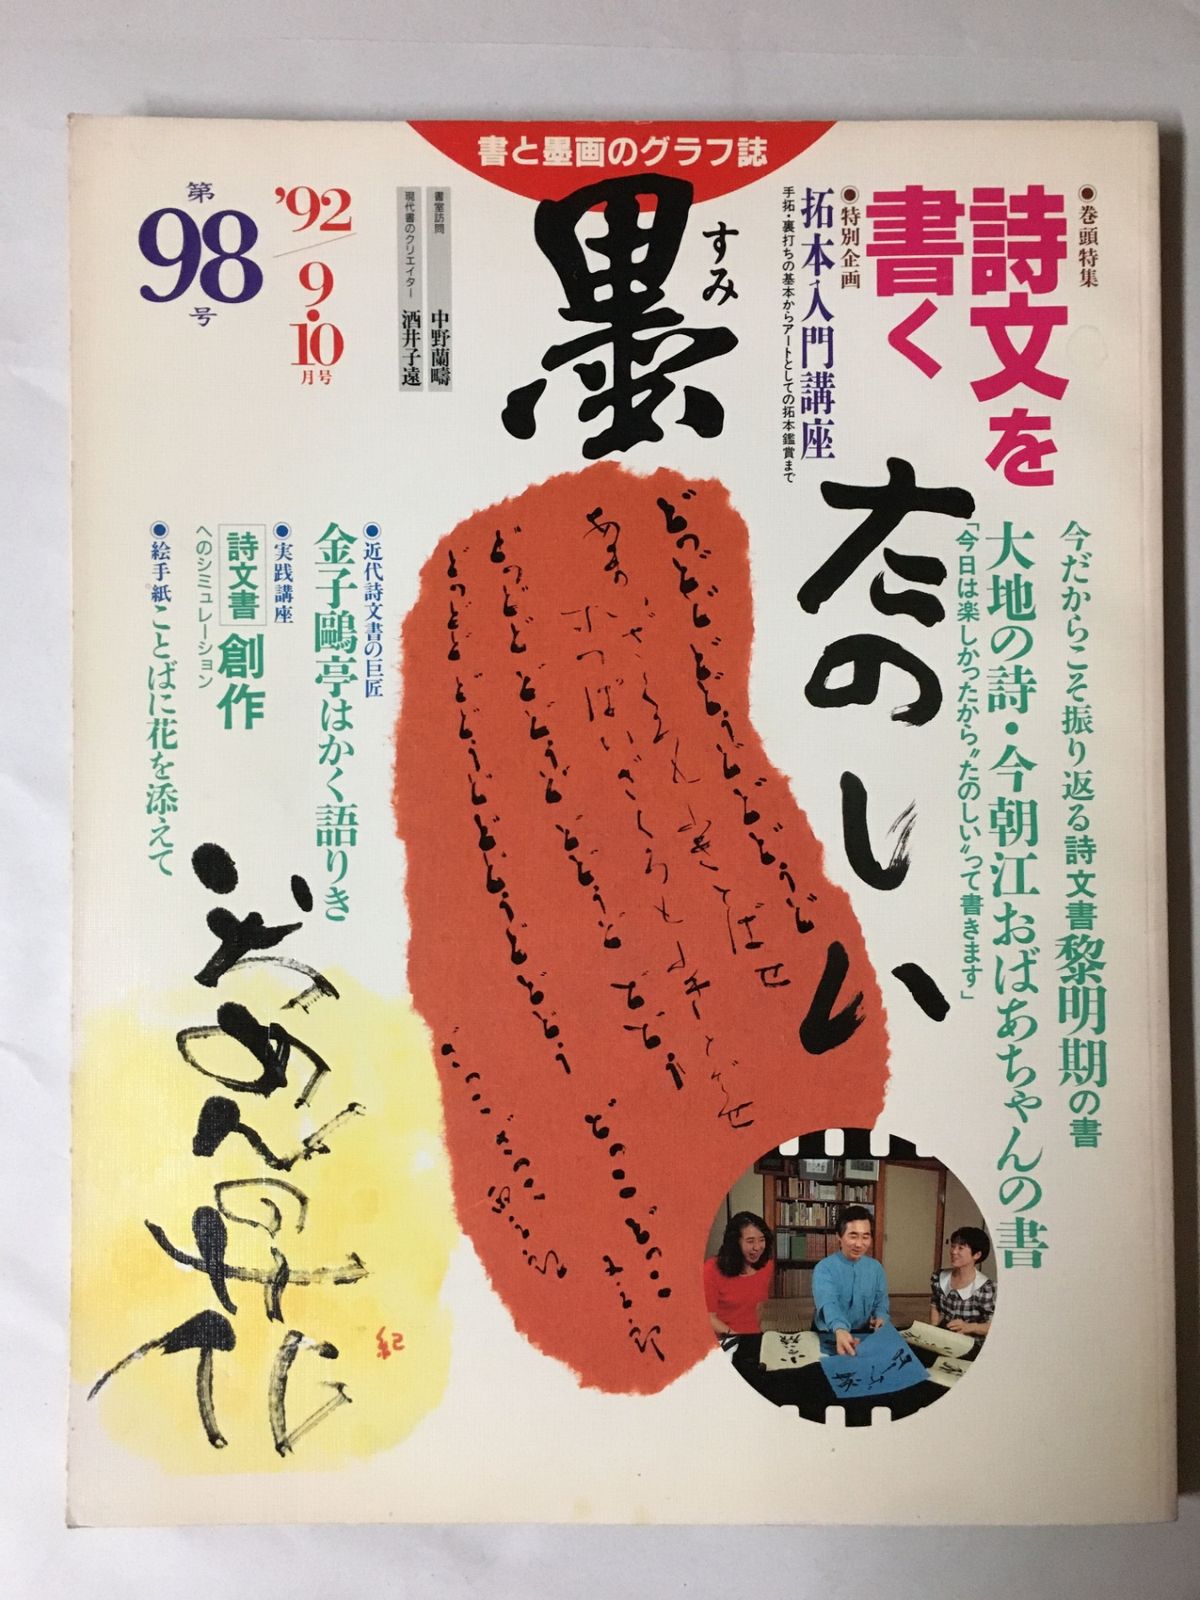 書と墨画のグラフ誌
墨
すみ
●巻頭特集
詩文を
書く
●特別企画
拓本入門講座
手拓・裏打ちの基本からアートとしての拓本鑑賞まで
書室訪問 中野蘭疇
現代書のクリエイター 酒井子遠
'92/9・10月号
第98号
今だからこそ振り返る詩文書黎明期の書
大地の詩・今朝江おばあちゃんの書
「今日は楽しかったから〝たのしい〟って書きます」
たのしい
どっどどどどうどどどうどどどう
あまいざくろも吹きとばせ
すっぱいざくろも吹きとばせ
どっどどどどうどどどうどどどう
どっどどどどうどどどうどどどう
●近代詩文書の巨匠
金子鷗亭はかく語りき
●実践講座
詩文書 創作
へのシミュレーション
●絵手紙 ことばに花を添えて
紀